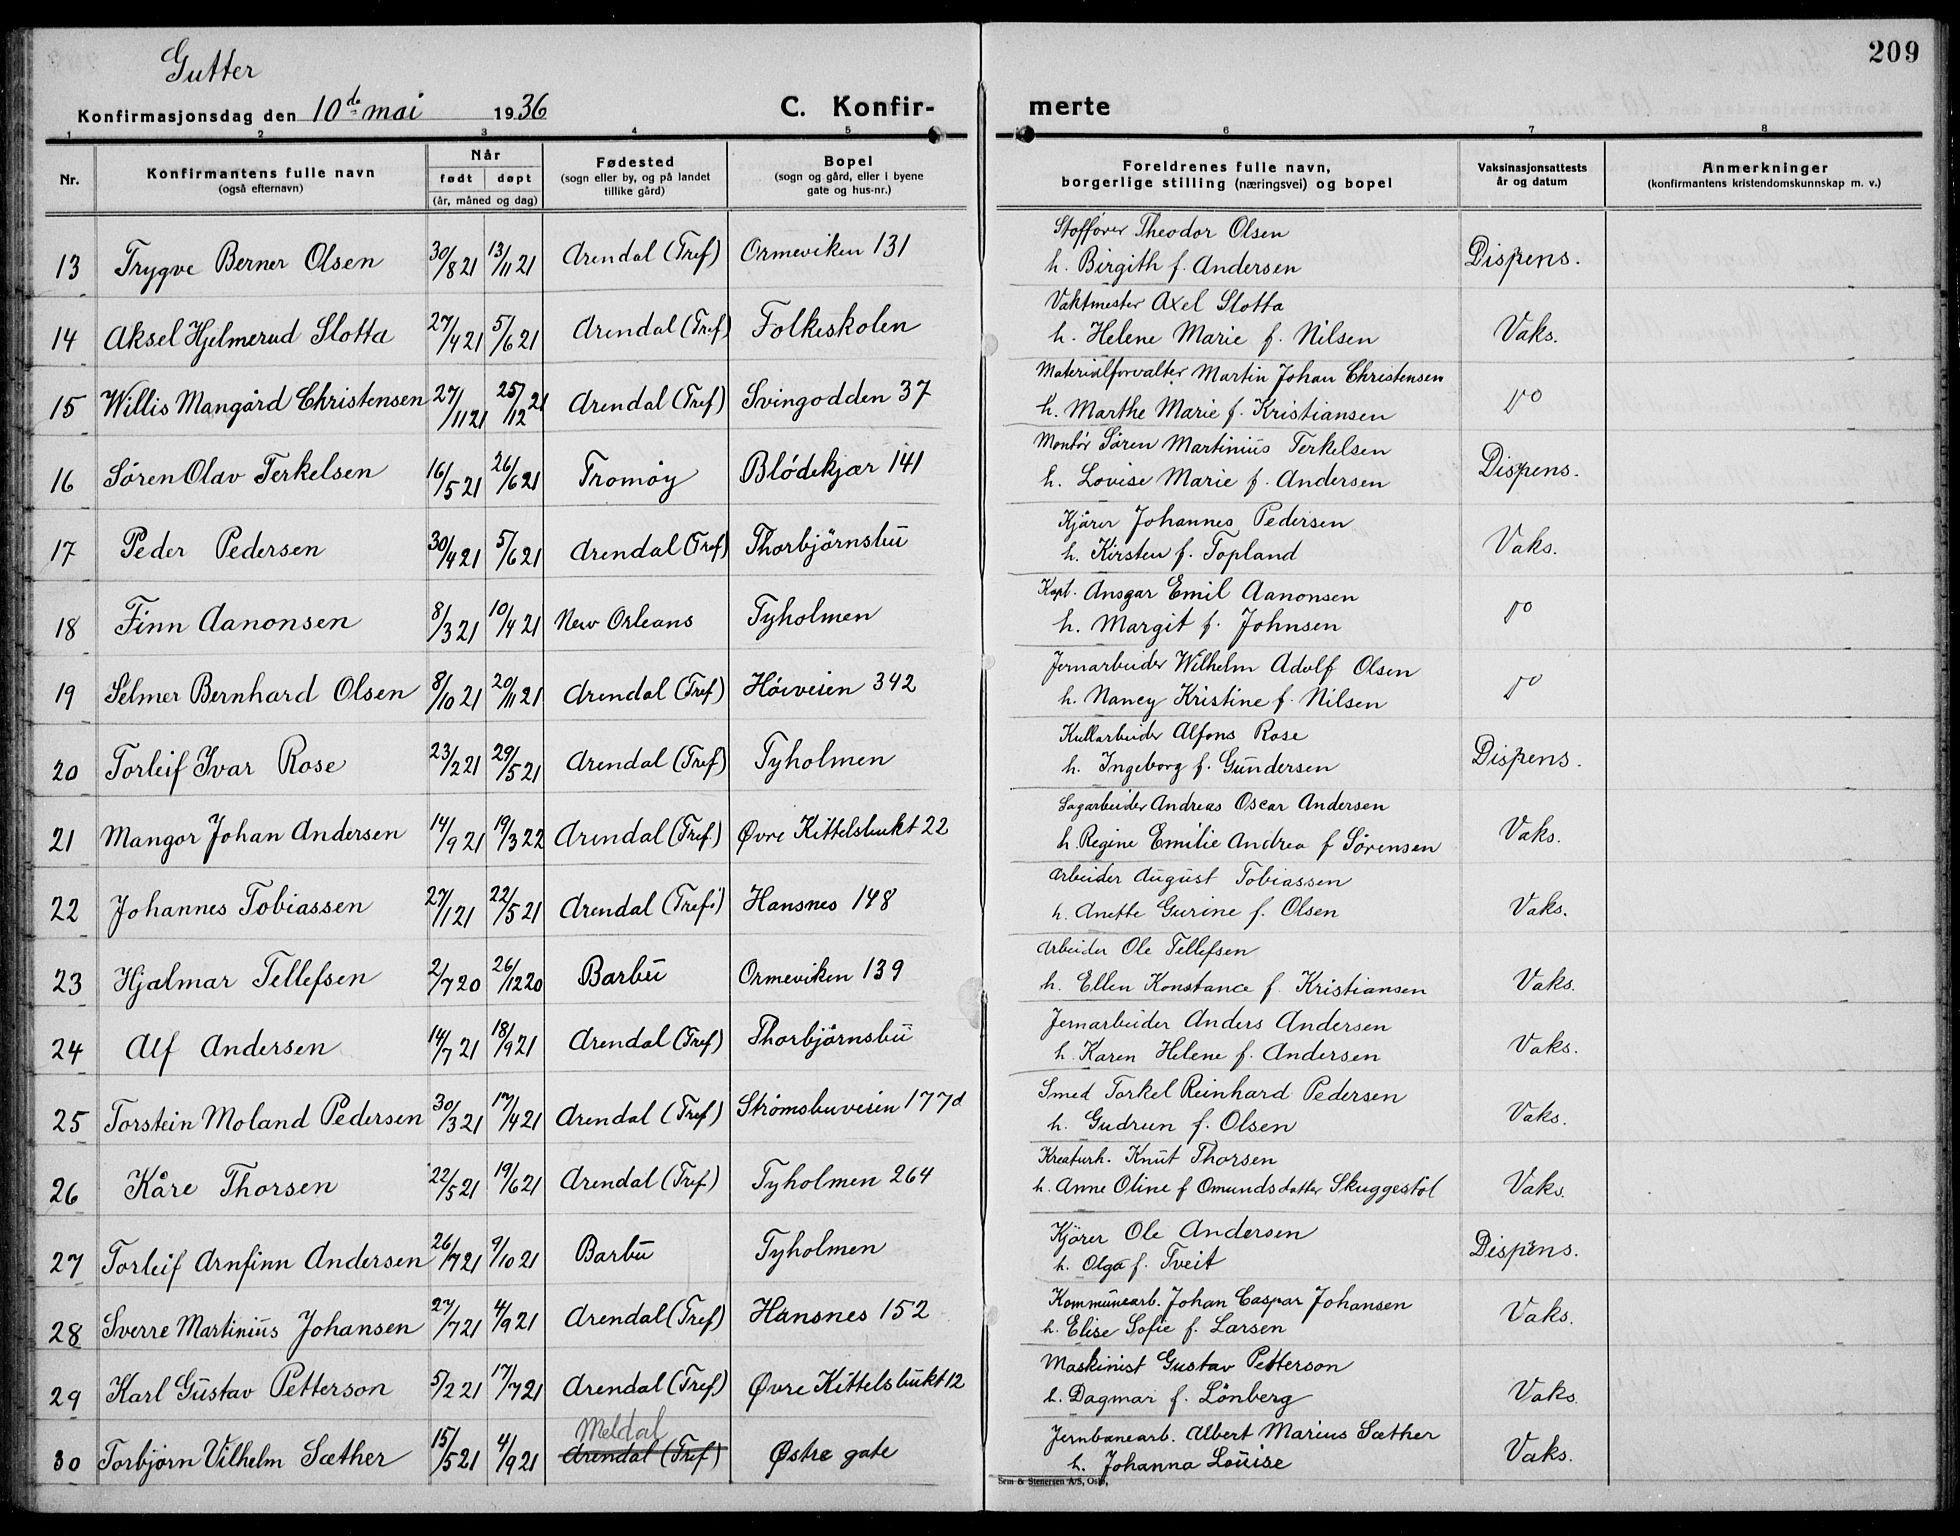 209
Gutter
Konfirmasjonsdag den 10de mai 1936 C. Konfir- merte
1 2 3 4 5 6 7 8
Nr. Konfirmantens fulle navn (også efternavn) Når født døpt (år, måned og dag) Fødested (sogn eller by, og på landet tillike gård) Bopel (sogn og gård, eller i byene gate og hus-nr.) Foreldrenes fulle navn, borgerlige stilling (næringsvei) og bopel Vaksinasjonsattests år og datum Anmerkninger (konfirmantens kristendomskunnskap m. v.)
Stoffører Theodor Olsen
13 Trygve Berner Olsen 30/8 21 13/11 21 Arendal (Tref) Ormeviken 131 h. Birgith f. Andersen Dispens.
Vaktmester Axel Slotta
14 Aksel Hjelmerud Slotta 27/4 21 5/6 21 Arendal (Tref) Folkeskolen h. Helene Marie f. Nilsen Vaks.
Materialforvalter Martin Johan Christensen
15 Willis Mangård Christensen 27/11 21 25/12 21 Arendal (Tref) Svingodden 37 h. Marthe Marie f. Kristiansen do
Montör Sören Martinius Terkelsen
16 Sören Olav Terkelsen 16/5 21 26/6 21 Tromöy Blödekjær 141 h. Lovise Marie f. Andersen Dispens.
Kjörer Johannes Pedersen
17 Peder Pedersen 30/4 21 5/6 21 Arendal (Tref) Thorbjörnsbu h. Kirsten f. Topland Vaks.
Kapt. Ansgar Emil Aanonsen
18 Finn Aanonsen 8/3 21 10/4 21 New Orleans Tyholmen h. Margit f. Johnsen do
Jernarbeider Wilhelm Adolf Olsen
19 Selmer Bernhard Olsen 8/10 21 20/11 21 Arendal (Tref) Höiveien 342 h. Nancy Kristine f. Nilsen do
Kullarbeider Alfons Rose
20 Torleif Ivar Rose 23/2 21 29/5 21 Arendal (Tref) Tyholmen h. Ingeborg f. Gundersen Dispens.
Sagarbeider Andreas Oscar Andersen
21 Mangor Johan Andersen 14/9 21 19/3 22 Arendal (Tref.) Øvre Kittelsbukt 22 h. Regine Emilie Andrea f Sørensen Vaks.
Arbeider August Tobiassen
22 Johannes Tobiassen 27/1 21 22/5 21 Arendal (Tref.) Hansnes 148 h. Anette Gurine f. Olsen Vaks.
Arbeider Ole Tellefsen
23 Hjalmar Tellefsen 2/7 20 26/12 20 Barbu Ormeviken 139 h. Ellen Konstance f. Kristiansen Vaks.
Jernarbeider Anders Andersen
24 Alf Andersen 14/7 21 18/9 21 Arendal (Tref) Thorbjörnsbu h. Karen Helene f. Andersen Vaks.
Smed Torkel Reinhard Pedersen
25 Torstein Moland Pedersen 30/3 21 17/4 21 Arendal (Tref) Strömsbuveien 177d h. Gudrun f. Olsen Vaks.
Kreaturh. Knut Thorsen
26 Kåre Thorsen 22/5 21 19/6 21 Arendal (Tref) Tyholmen 264 h. Anne Oline f Omundsdatter Skuggestöl Vaks.
Kjörer Ole Andersen
27 Torleif Arnfinn Andersen 26/7 21 9/10 21 Barbu Tyholmen h. Olga f. Tveit Dispens.
Kommunearb. Johan Caspar Johansen
28 Sverre Martinius Johansen 27/7 21 4/9 21 Arendal (Tref) Hansnes 152 h. Elise Sofie f. Larsen Vaks.
Maskinist Gustav Petterson
29 Karl Gustav Petterson 5/2 21 17/7 21 Arendal (Tref) Øvre Kittelsbukt 12 h. Dagmar f. Lönberg Vaks.
Meldal Jernbanearb. Albert Marius Sæther
30 Torbjørn Vilhelm Sæther 15/5 21 4/9 21 Arendal (Tref) Østre gate h. Johanna Louise Vaks.
Sem & Stenersen A/S, Oslo,